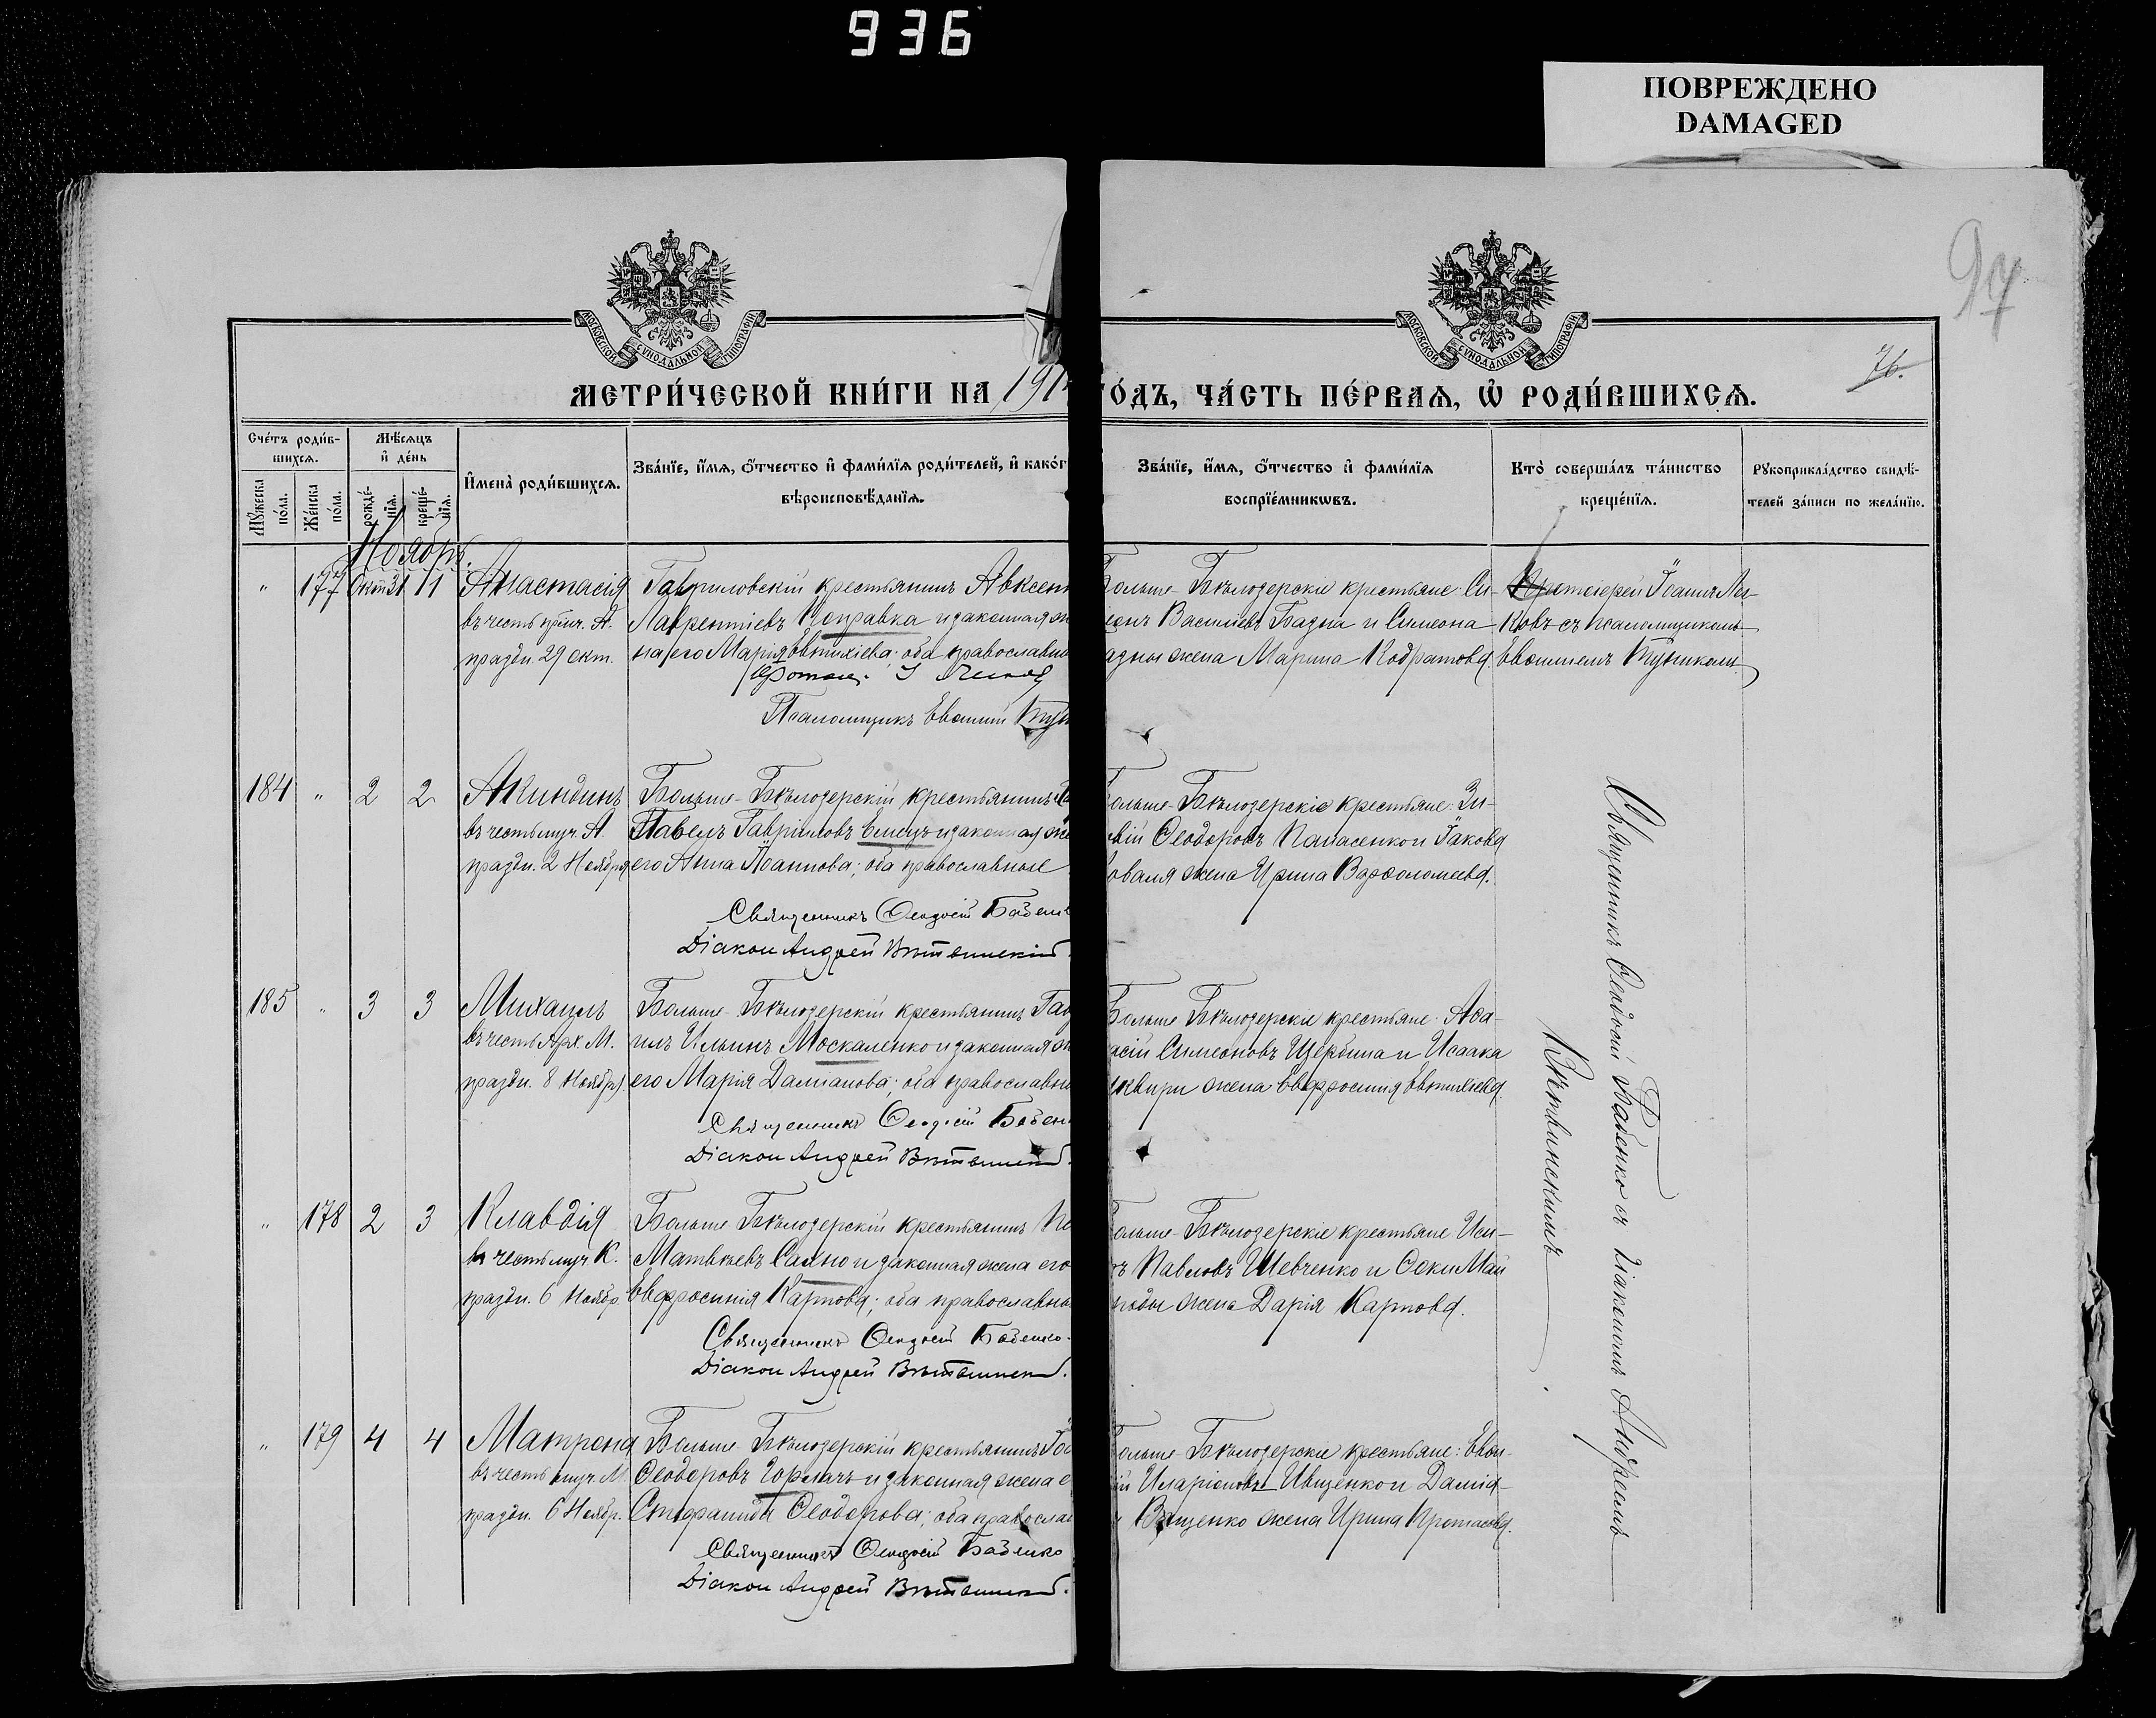 936
ПОВРЕЖДЕНО
DAMAGED
97
76.
МОСКОВСКОЙ СѴНОДАЛЬНОЙ ТИПОГРАФІИ
МОСКОВСКОЙ СѴНОДАЛЬНОЙ ТИПОГРАФІИ
МЕТРИ́ЧЕСКОЙ КНИ́ГИ НА 191
ГО́ДЪ, ЧА́СТЬ ПЕ́РВАѦ, Ѡ҆ РОДИ́ВШИХСѦ.
Сче́тъ роди́в-
шихсѧ.
Мѣ́сѧцъ
и҆ де́нь
Мꙋ́жеска по́ла.
Же́нска по́ла.
рожде́-
нїѧ.
креще́-
нїѧ.
И҆мена̀ роди́вшихсѧ.
Зва́нїе, и҆́мѧ, ѻ҆́тчество и҆ фами́лїѧ роди́телей, и҆ како́г
вѣроисповѣ́данїѧ.
Зва́нїе, и҆́мѧ, ѻ҆́тчество и҆ фами́лїѧ
воспрїе́мникѡвъ.
Кто̀ соверша́лъ та́инство
креще́нїѧ.
Рꙋкоприкла́дство свидѣ́-
телей за́писи по жела́нїю.
Ноябрь.
" 177 Окт 31 11 Анастасія
въ честь прпмч. А.
праздн. 29 окт.
Гавриловскій крестьянинъ Авксен
Лаврентіевъ Поправка и законная ж
на его Марія Евтихіева; оба православн
Протоіер. І Ликов
Псаломщикъ Евфимій Туп
Больше Бѣлозерскіе крестьяне: Си-
Васильевъ Бадна и Симеона
адны жена Марина Кодратова.
Протоіерей Іоаннъ Ли-
ковъ съ псаломщикомъ
Евфиміемъ
184 " 2 2 Акиндинъ
въ честь муч. А.
праздн. 2 Ноября
Больше-Бѣлозерскій крестьянинъ
Павелъ Гавріиловъ Емецъ и законная же
его Анна Іоаннова; оба православные
Священникъ Ѳеодосій Бабенк
Діаконъ Андрей Вѣтвинскій
Больше-Бѣлозерскіе крестьяне: Зи-
вій Ѳеодоровъ Панасенко и Іакова
оваля жена Ирина Варфоломеева.
Священникъ Ѳеодосій Бабенко съ Діакономъ Андреемъ
Вѣтвинскимъ
185 " 3 3 Михаилъ
въ честь Арх. М.
праздн. 8 Ноября
Больше-Бѣлозерскій крестьянинъ Гав
илъ Ильинъ Москаленко и законная ж
его Марія Даміанова; оба православн
Священникъ Ѳеодосій Бабен
Діаконъ Андрей Вѣтвинскій
Больше Бѣлозерскіе крестьяне: Аѳа-
асій Симеоновъ Щербина и Исаака
жена Евфросинія Евтихіева.
" 178 2 3 Клавдія
въ честь муч. К.
праздн. 6 Ноябр.
Больше Бѣлозерскій крестьянинъ
Матвѣевъ Сахно и законная жена его
Евфросинія Карпова; оба православны
Священникъ Ѳеодосій Бабенко
Діаконъ Андрей Вѣтвинскій.
ольше-Бѣлозерскіе крестьяне Иси-
ръ Павловъ Шевченко и Ѳеки Май
жена Дарія Карпова.
" 179 4 4 Матрона
въ честь муч. М.
праздн. 6 Ноябр.
Больше Бѣлозерскій крестьянинъ Іо
Ѳеодоровъ Горпачъ и законная жена е
Стефанида Ѳеодорова; оба православ
Священникъ Ѳеодосій Бабенко
Діаконъ Андрей Вѣтвинскій.
ольше-Бѣлозерскіе крестьяне: Евфи-
ій Иларіоновъ Иващенко и Даміа-
жена Ирина Протасова.